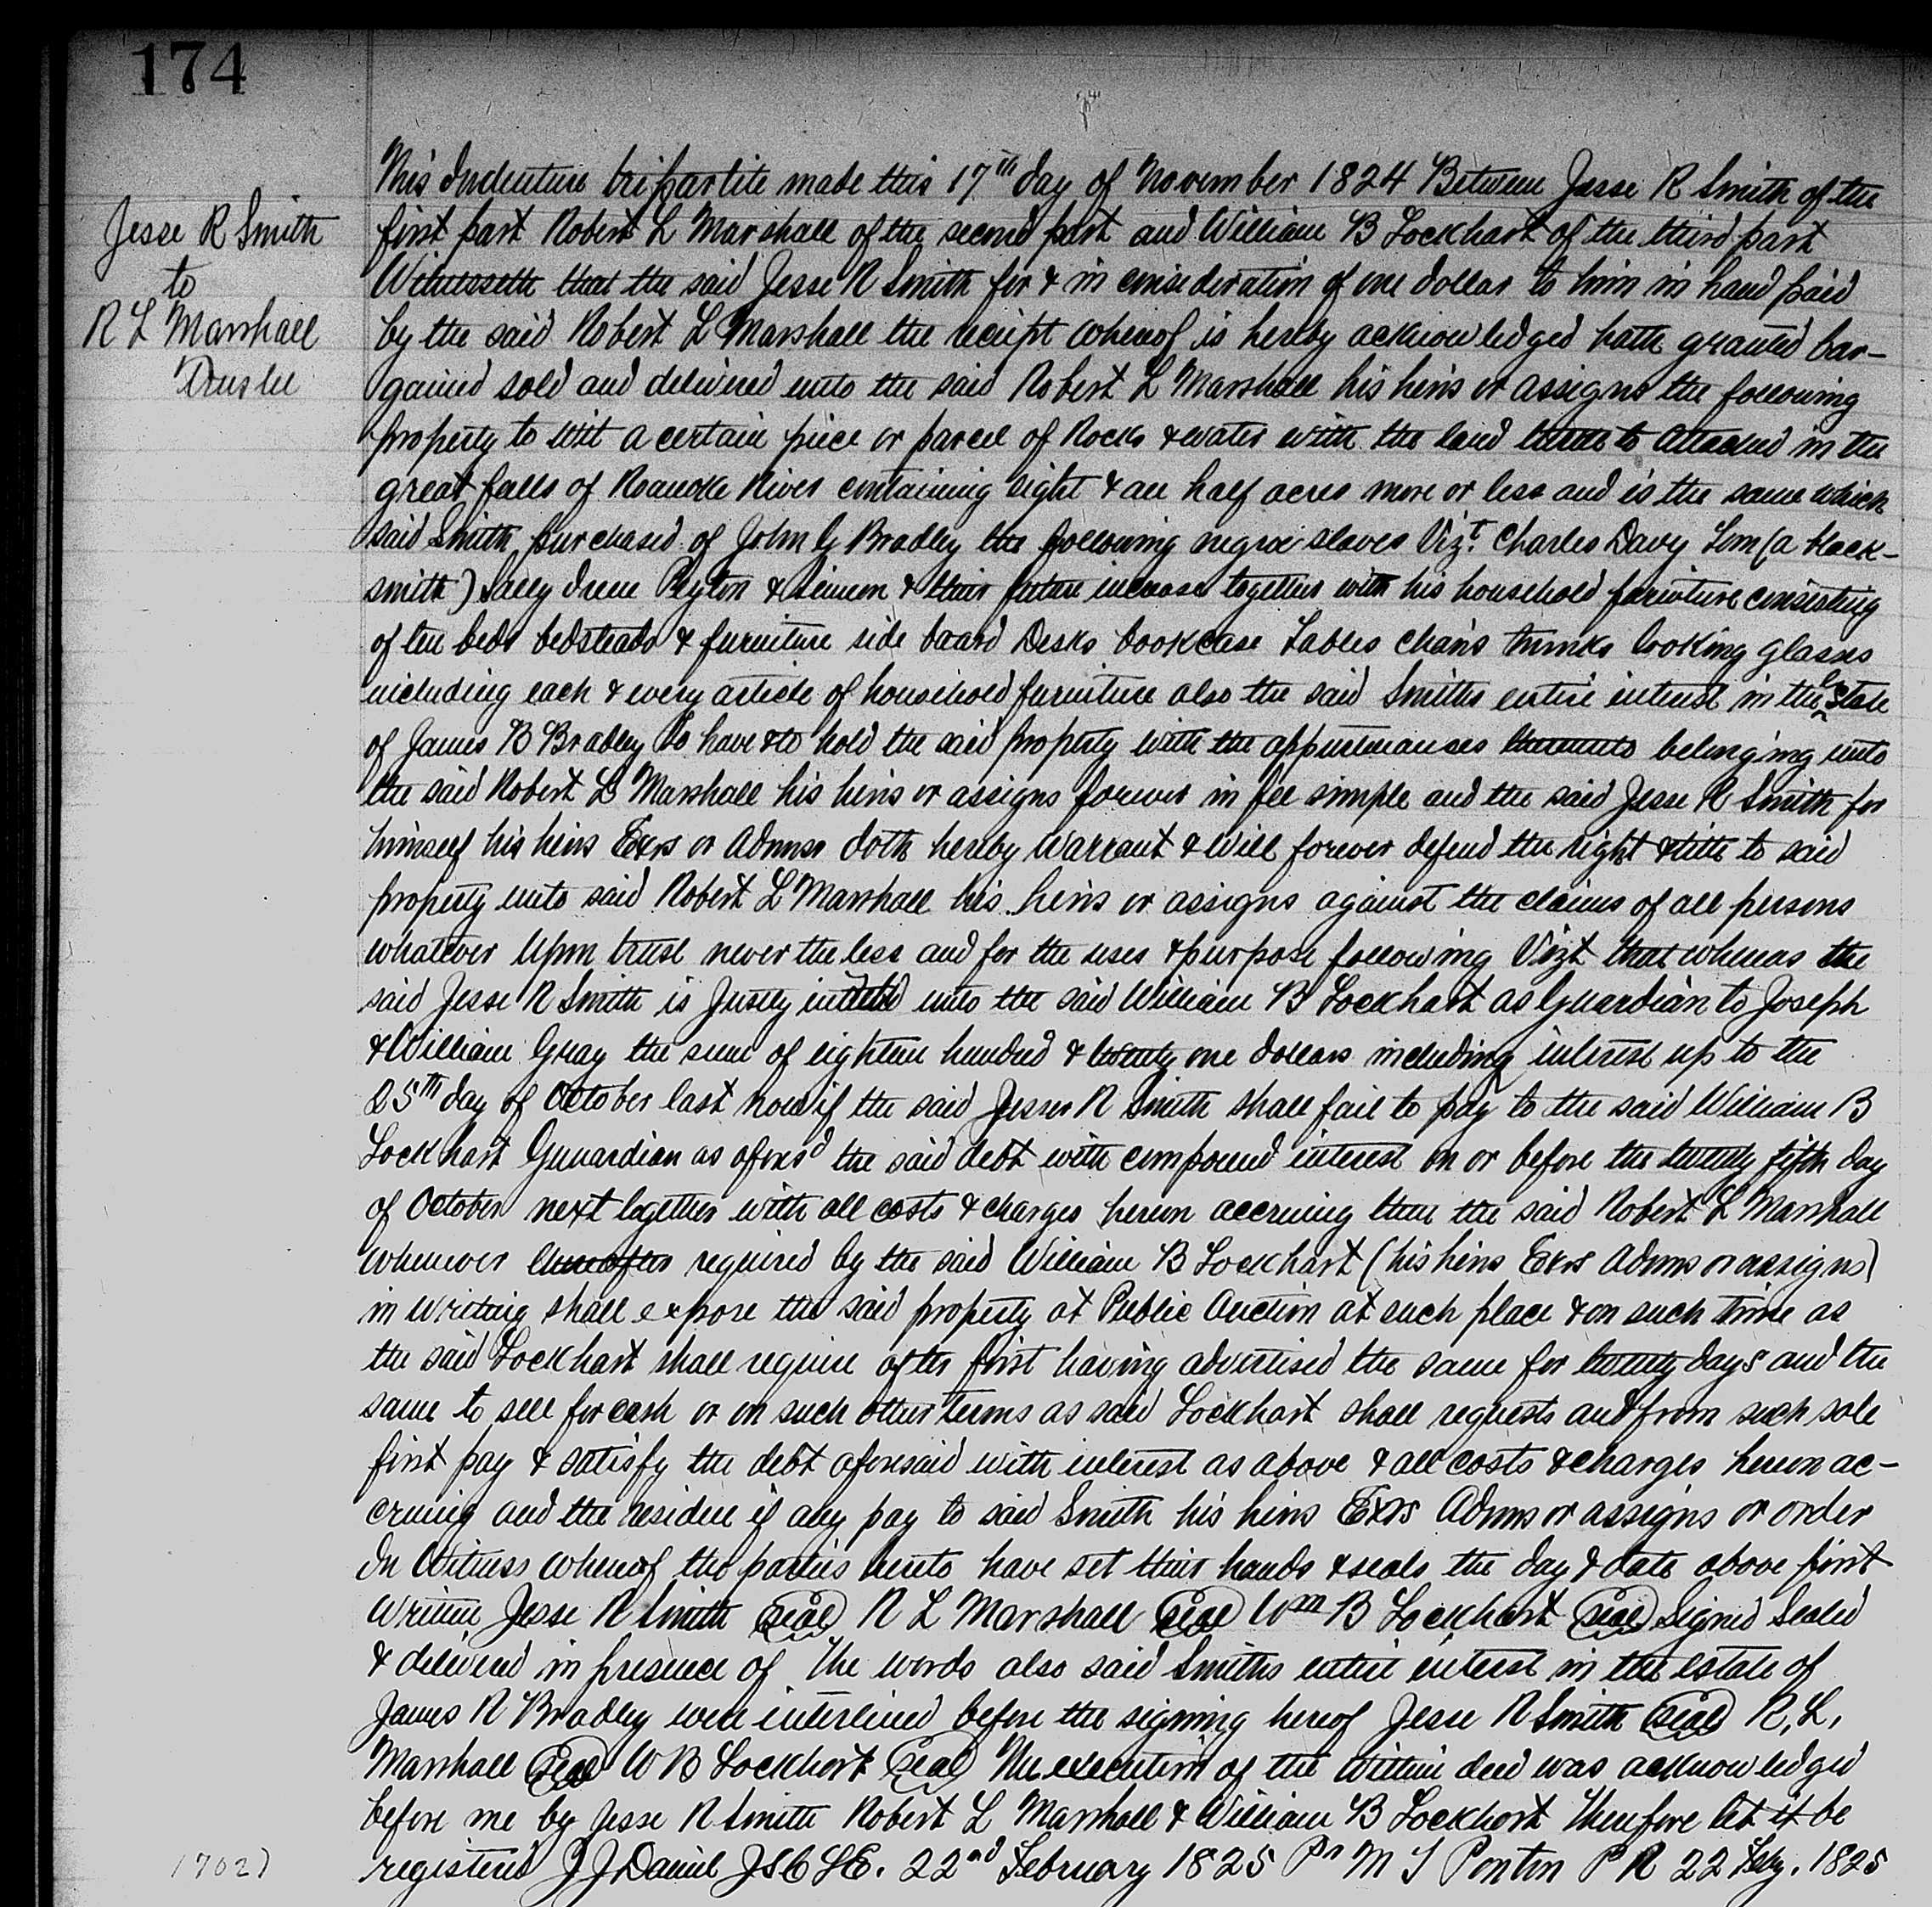 174
Jesse R Smith
to
R L Marshall
Trustee
This Indenture tripartite made this 17th day of November 1824 Between Jesse R Smith of the
first part Robert L Marshall of the second part and William B Lockhart of the third part
Witnesseth that the said Jesse R Smith for & in consideration of one dollar to him in hand paid
by the said Robert L Marshall the receipt whereof is hereby acknowledged hath granted bar-
gained sold and delivered unto the said Robert L Marshall his heirs or assigns the following
property to wit a certain piece or parcel of Rocks & water with the land thereto attached in the
great falls of Roanoke River containing eight & an half acres more or less and is the same which
said Smith purchased of John G Bradley the following negroe slaves Vizt. Charles Davy Tom (a black-
smith) Sally Peyton & Simon & their future increase together with his household furniture consisting
of ten beds bedsteads & furniture side board Desks bookcase Tables chairs trunks looking glasses
including each & every article of household furniture also the said Smiths entire interest in the Estate
of James B Bradley to have & to hold the said property with the appurtenances thereunto belonging unto
the said Robert L Marshall his heirs or assigns forever in fee simple and the said Jesse R Smith for
himself his heirs Exrs or Admrs doth hereby Warrant & Will forever defend the right & title to said
property unto said Robert L Marshall his heirs or assigns against the claims of all persons
whatever Upon trust never the less and for the uses & purpose following Vizt that whereas the
said Jesse R Smith is Justly indebted unto the said William B Lockhart as Guardian to Joseph
& William Gray the sum of eighteen hundred & twenty one dollars including interest up to the
25th day of October last now if the said Jesse R Smith shall fail to pay to the said William B
Lockhart Guuardian as afores'd the said debt with compound interest on or before the twenty fifth day
of October next together with all costs & charges hereon accruing then the said Robert L Marshall
whenever thereafter required by the said William B Lockhart (his heirs Exrs Admrs or assigns)
in writing shall expose the said property at Public Auction at such place & on such time as
the said Lockhart shall require after first having advertised the same for twenty days and the
same to sell for cash or on such other terms as said Lockhart shall requests and from such sale
first pay & satisfy the debt aforesaid with interest as above & all costs & charges hereon ac-
cruing and the residue if any pay to said Smith his heirs Exrs Admrs or assigns or order
In Witness whereof the parties hereto have set their hands & seals the day & date above first
written Jesse R Smith seal R L Marshall seal Wm B Lockhart seal Signed Sealed
& delivered in presence of The words also said Smiths entire interest in the estate of
James R Bradley were interlined before the signing hereof Jesse R Smith seal R. L.
Marshall seal W B Lockhart seal The execution of the within deed was acknowledged
before me by Jesse R Smith Robert L Marshall & William B Lockhart Therefore let it be
registered J J Daniel J S C L E. 22nd February 1825 Pr M T Ponton P R 22 Feby. 1825
1702)